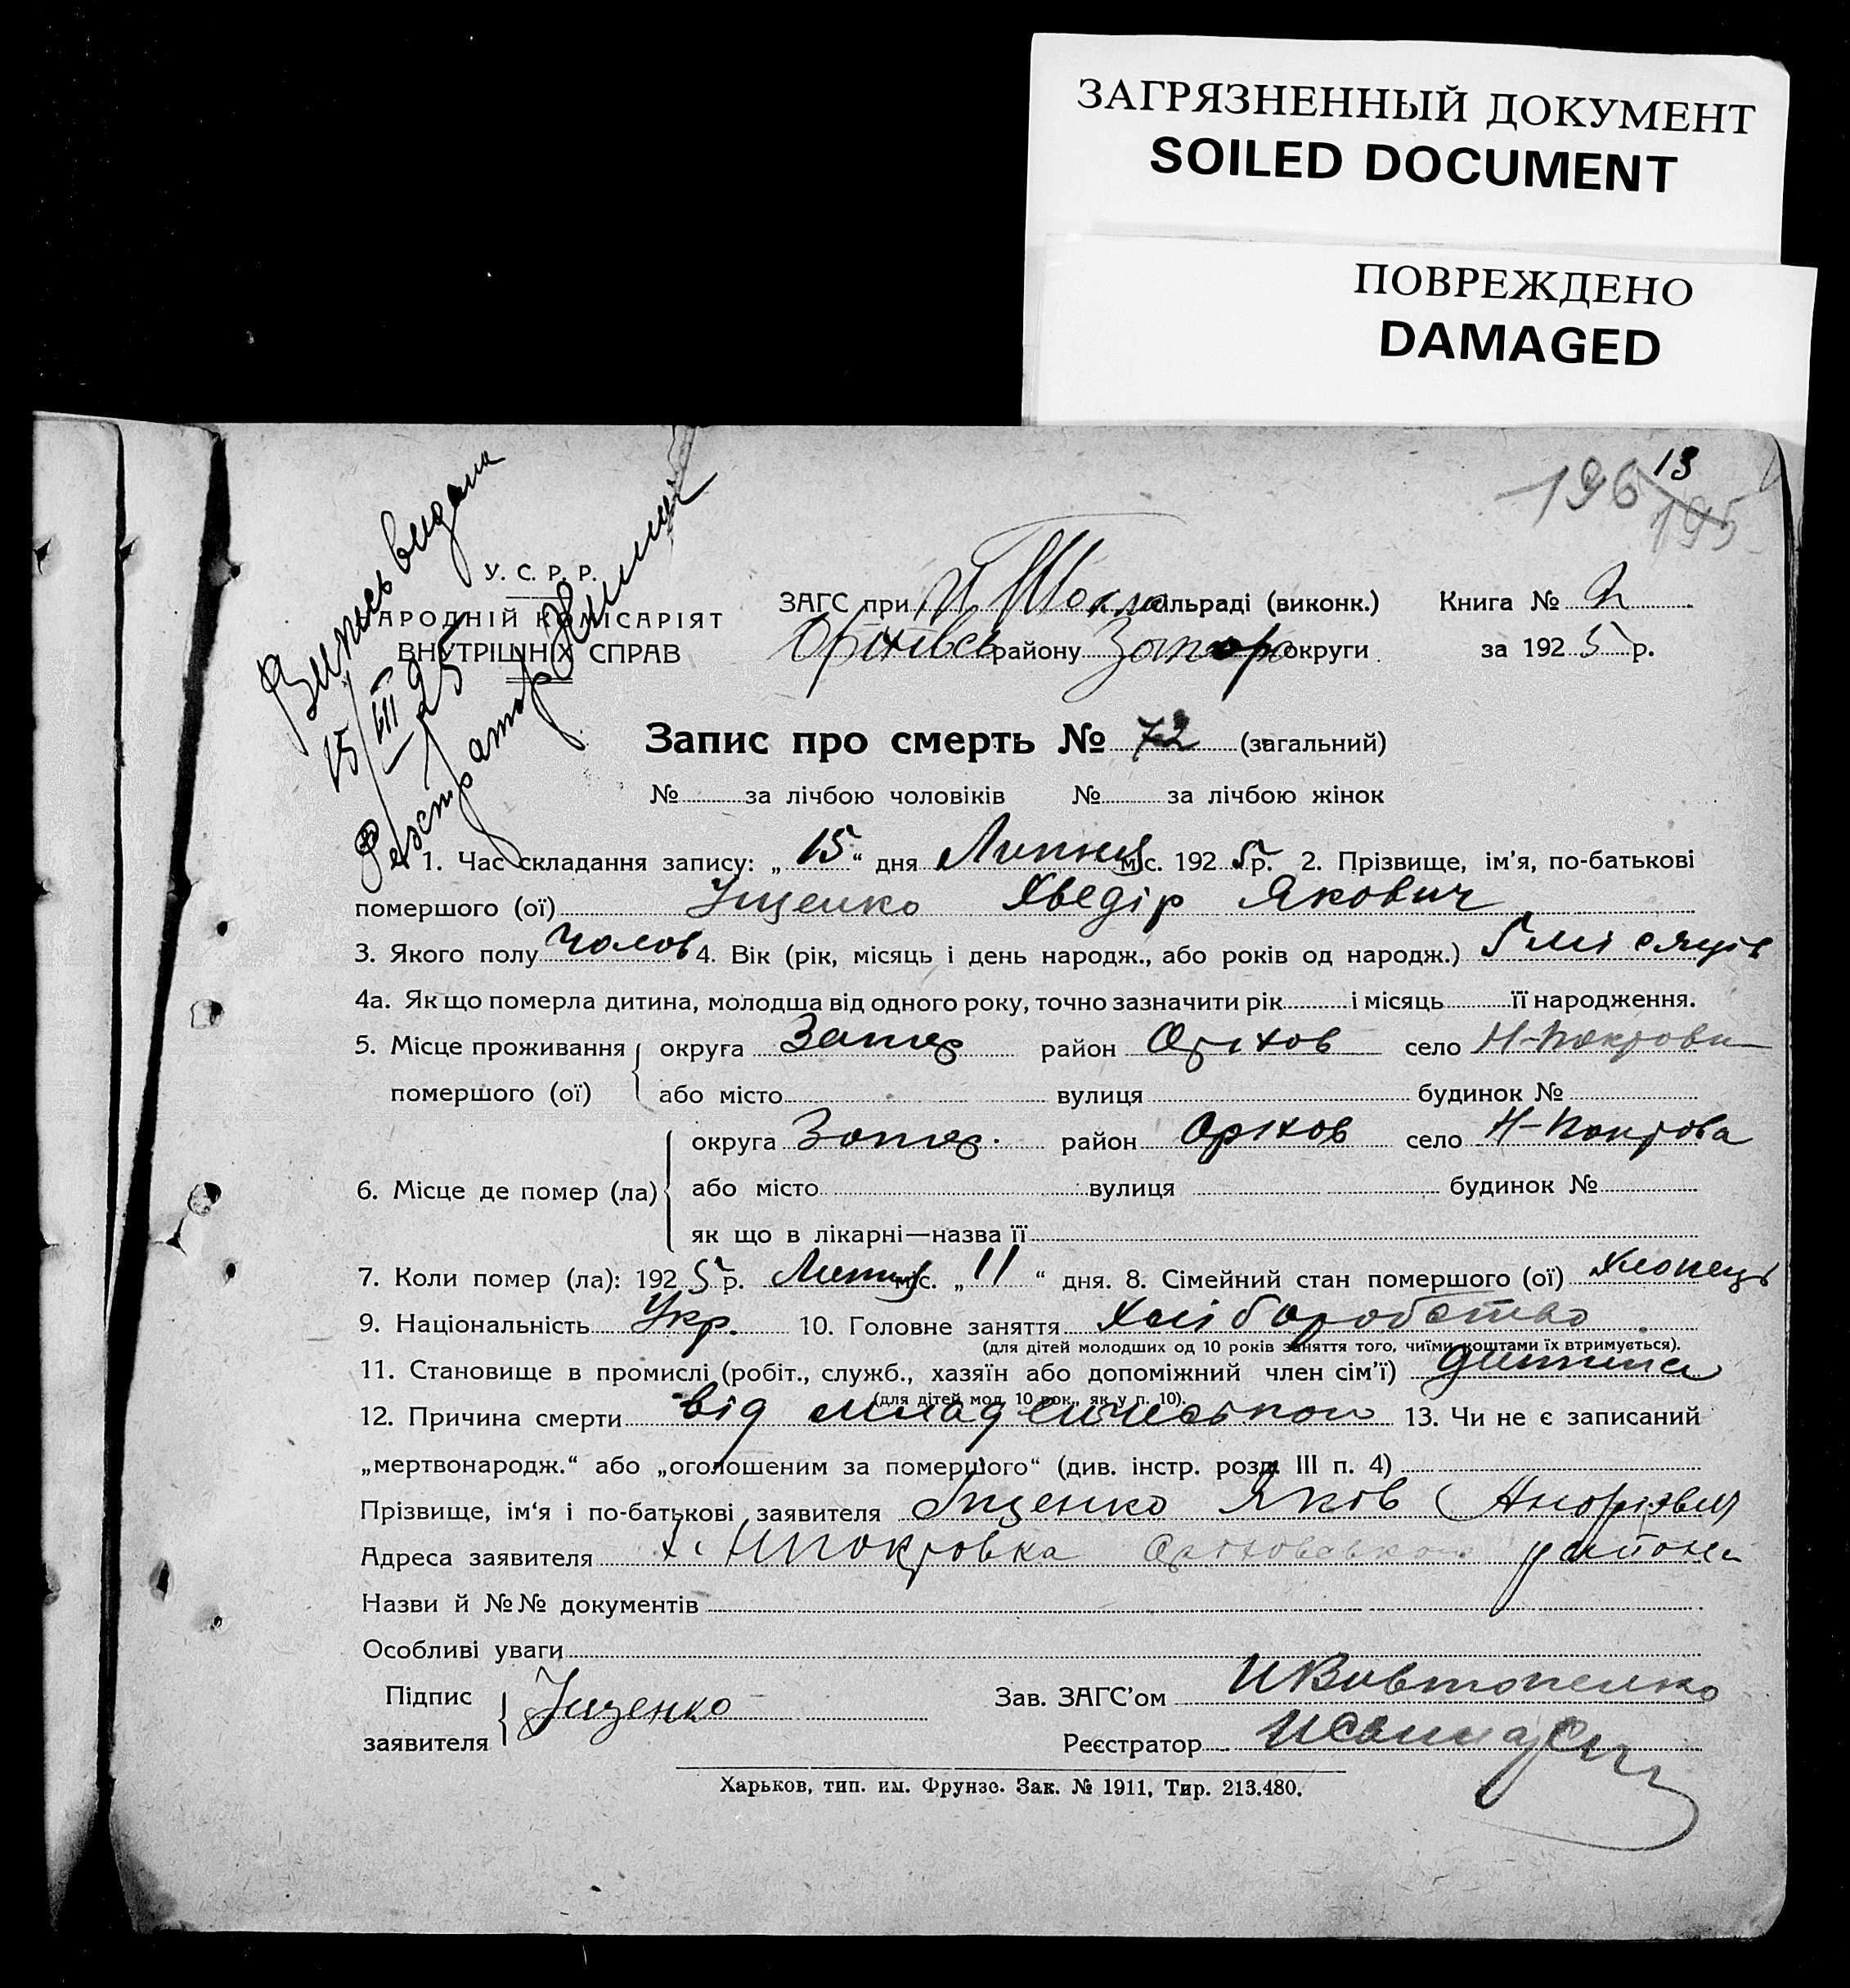 ЗАГРЯЗНЕННЫЙ ДОКУМЕНТ
SOILED DOCUMENT
ПОВРЕЖДЕНО
DAMAGED
13
196
195
Випись видана
15/VII 25
Реєстратор
У. С. Р. Р.
НАРОДНІЙ КОМІСАРІЯТ
ВНУТРІШНІХ СПРАВ
ЗАГС при сільраді (виконк.) Книга № 2
Оріхівсь району Запор округи за 192 5 р.
Запис про смерть № 72 (загальний)
№ за лічбою чоловіків № за лічбою жінок
1. Час складання запису: „ 15 “ дня Липня м/с. 192 5 р. 2. Прізвище, ім'я, по-батькові
помершого (ої) Іщенко Хведір Якович
3. Якого полу чолов 4. Вік (рік, місяць і день народж., або років од народж.) 5 місяців
4а. Як що померла дитина, молодша від одного року, точно зазначити рік і місяць її народження.
5. Місце проживання округа Запор район Оріхов село Н-Покровка
помершого (ої) або місто вулиця будинок №
округа Запор. район Оріхов село Н-Покрова
6. Місце де помер (ла) або місто вулиця будинок №
як що в лікарні—назва її
7. Коли помер (ла): 192 5 р. Липня м/с. „ 11 “ дня. 8. Сімейний стан помершого (ої) Хлопець
9. Національність Укр. 10. Головне заняття Хліборобство
(для дітей молодших од 10 років заняття того, чиїми коштами їх втримується).
11. Становище в промислі (робіт., служб., хазяїн або допоміжний член сім'ї) дитина
(для дітей мол. 10 рок., як у п. 10).
12. Причина смерти від младенчеською 13. Чи не є записаний
„мертвонародж.“ або „оголошеним за помершого“ (див. інстр. розд. III п. 4)
Прізвище, ім'я і по-батькові заявителя Іщенко Яків Андрієвич
Адреса заявителя х. Нпокровка Оріховською района
Назви й №№ документів
Особливі уваги
Підпис Іщенко Зав. ЗАГС'ом
заявителя Реєстратор
Харьков, тип. им. Фрунзе. Зак. № 1911, Тир. 213.480.